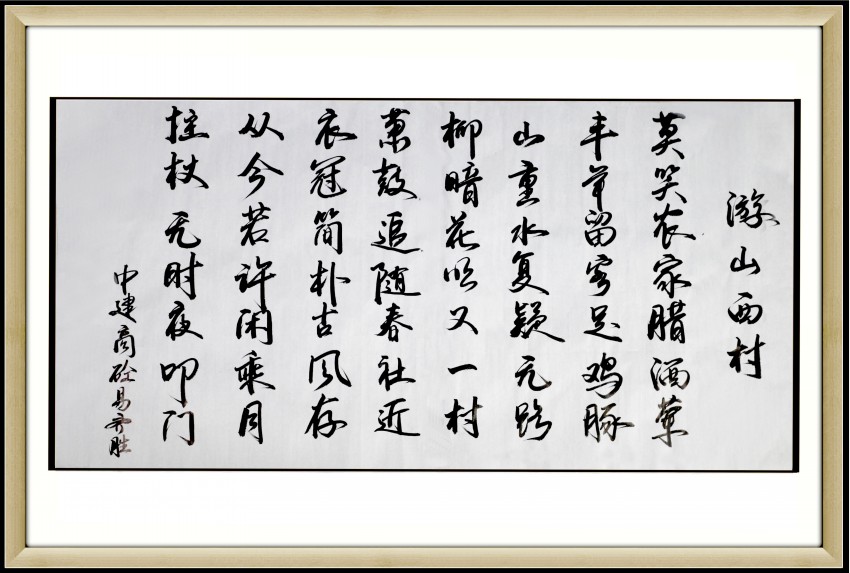 游山西村
莫笑农家腊酒荤
丰年留客足鸡豚
山重水复疑无路
柳暗花明又一村
萧鼓追随春社近
衣冠简朴古风存
从今若许闲乘月
拄杖无时夜叩门
中建商砼易齐胜